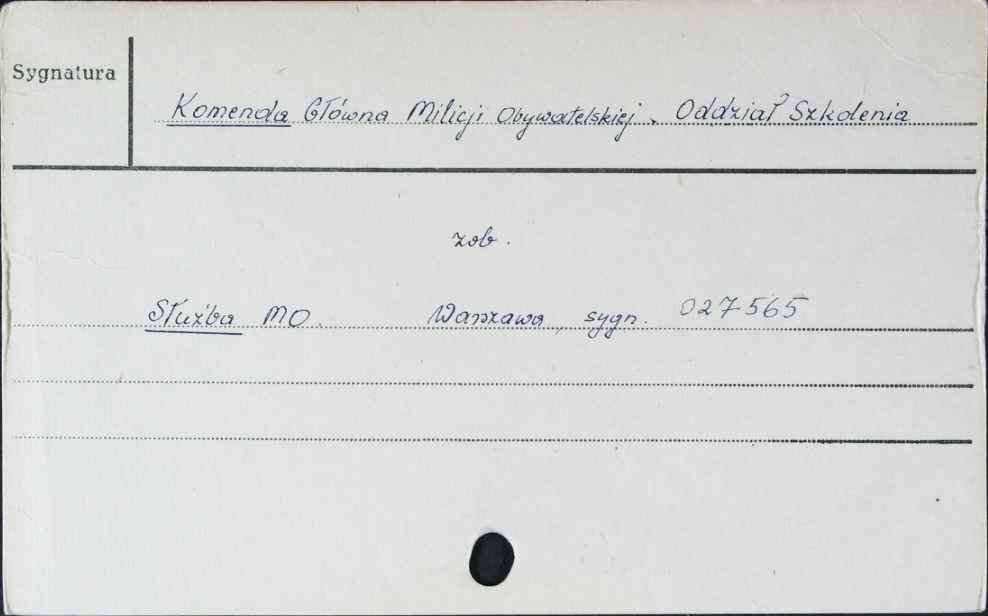 Sygnatura
Komenda Główna Milicji Obywatelskiej. Oddział Szkolenia
zob.
Służba MO. Warszawa, sygn. 027565